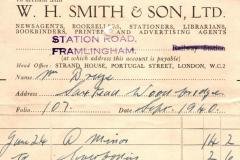 W. H. SMITH & SON, LTD.
NEWSAGENTS, BOOKSELLERS, STATIONERS, LIBRARIANS,
BOOKBINDERS, PRINTERS AND ADVERTISING AGENTS
STATION ROAD,
FRAMLINGHAM. Railway Station
(at which address this account is payable)
Head Office: STRAND HOUSE, PORTUGAL STREET, LONDON, W.C.2
Mr
Woodbridge
Folio 7. Date Sept. 1940.
June 24 A 14 2